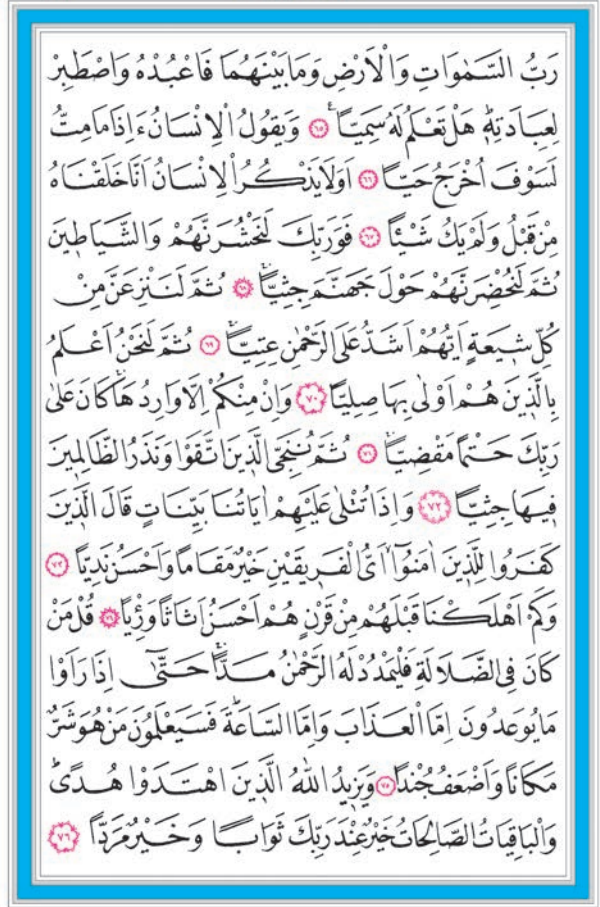 رَبُّ السَّمٰوَاتِ وَالْاَرْضِ وَمَا بَيْنَهُمَا فَاعْبُدْهُ وَاصْطَبِرْ
لِعِبَادَتِهٖؕ هَلْ تَعْلَمُ لَهُ سَمِيًّاࣖ ﴿٦٥﴾ وَيَقُولُ الْاِنْسَانُ ءَاِذَا مَا مِتُّ
لَسَوْفَ اُخْرَجُ حَيًّا ﴿٦٦﴾ اَوَلَا يَذْكُرُ الْاِنْسَانُ اَنَّا خَلَقْنَاهُ
مِنْ قَبْلُ وَلَمْ يَكُ شَيْـًٔا ﴿٦٧﴾ فَوَرَبِّكَ لَنَحْشُرَنَّهُمْ وَالشَّيَاطٖينَ
ثُمَّ لَنُحْضِرَنَّهُمْ حَوْلَ جَهَنَّمَ جِثِيًّاۚ ﴿٦٨﴾ ثُمَّ لَنَنْزِعَنَّ مِنْ
كُلِّ شٖيعَةٍ اَيُّهُمْ اَشَدُّ عَلَى الرَّحْمٰنِ عِتِيًّاۚ ﴿٦٩﴾ ثُمَّ لَنَحْنُ اَعْلَمُ
بِالَّذٖينَ هُمْ اَوْلٰى بِهَا صِلِيًّا ﴿٧٠﴾ وَاِنْ مِنْكُمْ اِلَّا وَارِدُهَاۚ كَانَ عَلٰى
رَبِّكَ حَتْمًا مَقْضِيًّاۚ ﴿٧١﴾ ثُمَّ نُنَجِّي الَّذٖينَ اتَّقَوْا وَنَذَرُ الظَّالِمٖينَ
فٖيهَا جِثِيًّا ﴿٧٢﴾ وَاِذَا تُتْلٰى عَلَيْهِمْ اٰيَاتُنَا بَيِّنَاتٍ قَالَ الَّذٖينَ
كَفَرُوا لِلَّذٖينَ اٰمَنُٓوا اَيُّ الْفَرٖيقَيْنِ خَيْرٌ مَقَامًا وَاَحْسَنُ نَدِيًّا ﴿٧٣﴾
وَكَمْ اَهْلَكْنَا قَبْلَهُمْ مِنْ قَرْنٍ هُمْ اَحْسَنُ اَثَاثًا وَرِءْيًا ﴿٧٤﴾ قُلْ مَنْ
كَانَ فِي الضَّلَالَةِ فَلْيَمْدُدْ لَهُ الرَّحْمٰنُ مَدًّاۚ حَتّٰٓى اِذَا رَاَوْا
مَا يُوعَدُونَ اِمَّا الْعَذَابَ وَاِمَّا السَّاعَةَؕ فَسَيَعْلَمُونَ مَنْ هُوَ شَرٌّ
مَكَانًا وَاَضْعَفُ جُنْدًا ﴿٧٥﴾ وَيَزٖيدُ اللّٰهُ الَّذٖينَ اهْتَدَوْا هُدًىؕ
وَالْبَاقِيَاتُ الصَّالِحَاتُ خَيْرٌ عِنْدَ رَبِّكَ ثَوَابًا وَخَيْرٌ مَرَدًّا ﴿٧٦﴾